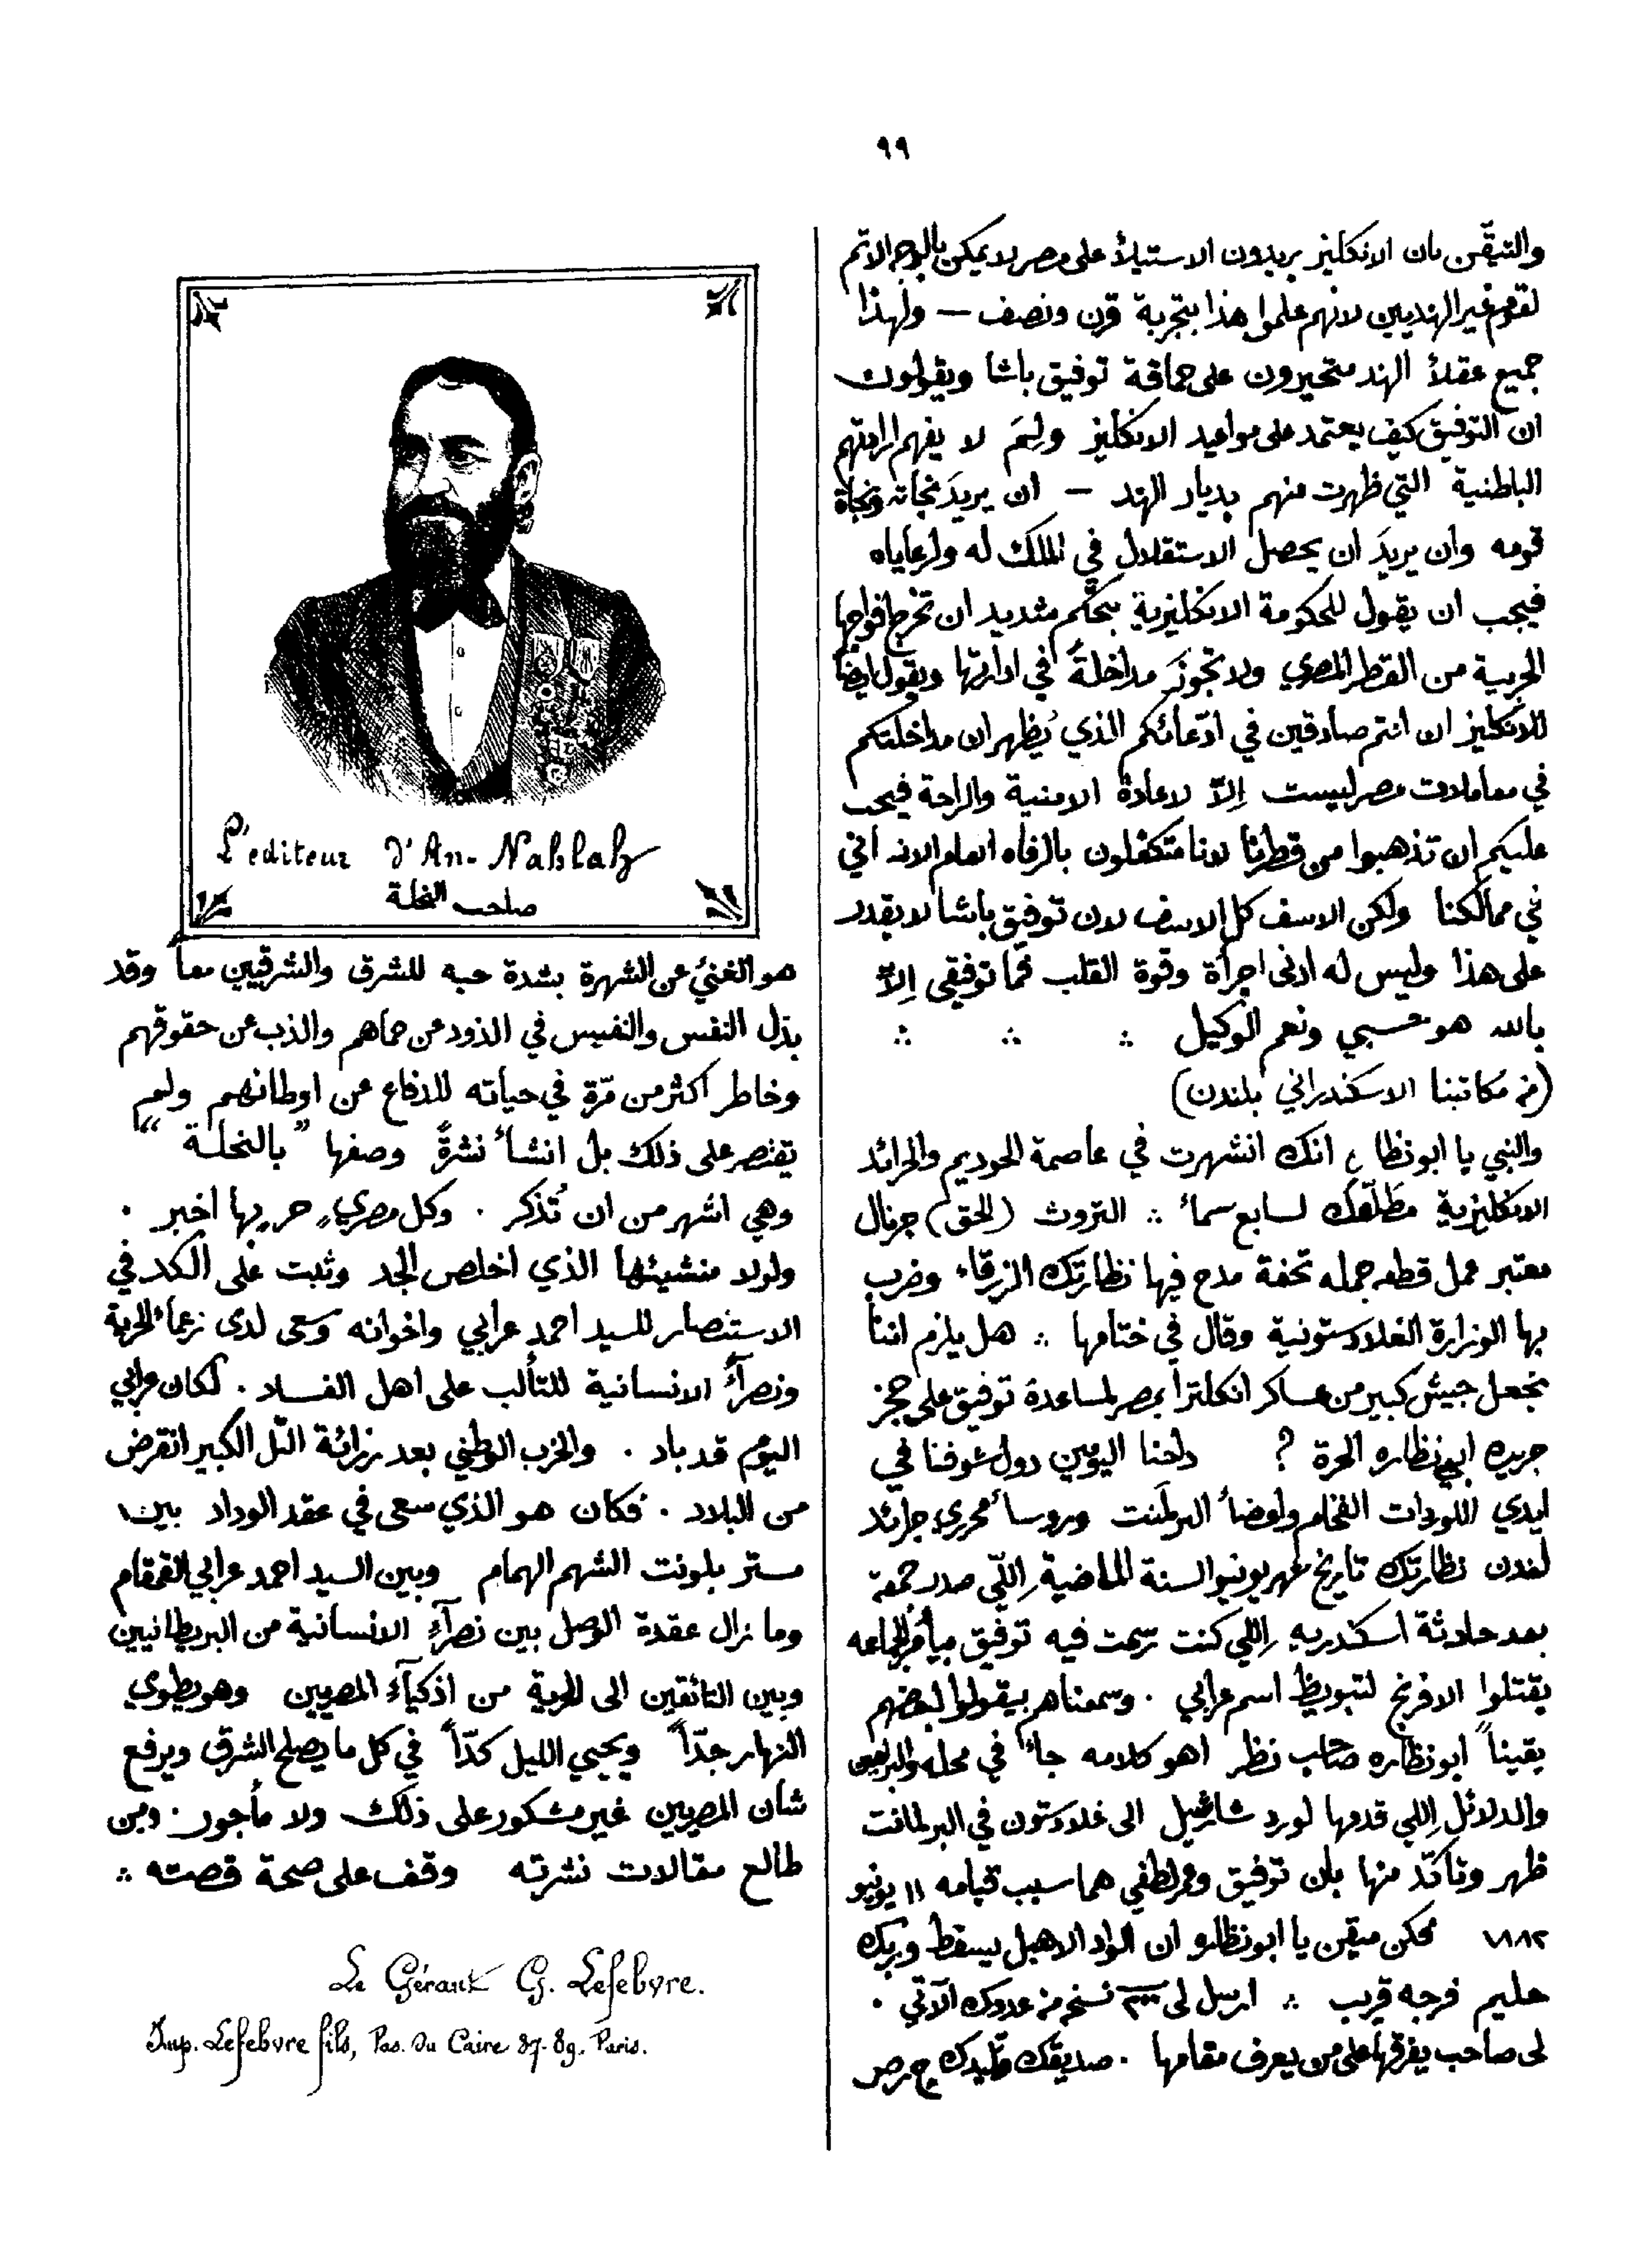 ٩٩
والتيقّن بان الانكليز يريدون الاستيلأ على مصر لا يمكن بالوجه الاتم
لقوم غير الهنديين لانهم علموا هذا بتجربة قرن ونصف — ولهذا
جميع عقلأ الهند متحيرون على حماقة توفيق باشا ويقولون
ان التوفيق كيف يعتمد على مواعيد الانكليز ولِمَ لا يفهم ارادتهم
الباطنية التي ظهرت منهم بديار الهند — ان يريدَ نجاته ونجاة
قومه وان يريدَ ان يحصل الاستقلال في الملك له ولرعاياه
فيجب ان يقول للحكومة الانكليزية بتحكّم شديد ان تخرج افواجها
الحربية من القطر المصري ولا تجوّنَ مداخلةً في ادارتها ويقول ايضا
للانكليز ان انتم صادقين في ادّعائكم الذي يُظهر ان مداخلتكم
في معاملات مصر ليست اِلاّ لاعادة الامنية والراحة فيجب
عليكم ان تذهبوا من قطرنا لاننا متكفلون بالرفاه العام الان اتي
في ممالكنا ولكن الاسف كل الاسف لان توفيق باشا لا يقدر
على هذا وليس له ادنى اجرأة وقوة القلب فما توفيقي اِلاّ
بالله هو حسبي ونعم الوكيل ∴ ∴ ∴
(من مكاتبنا الاسكندراني بلندن)
والنبي يا ابو نظاره انك انشهرت في عاصمة الحوديم والجرائد
الانكليزية مطَلّعَك لسابع سمأ ∴ التروث (الحق) جرنال
معتبر عمل قطعه جمله تحفة مدح فيها نظارتك الزرقاء وضرب
بها الوزارة الغلادستونية وقال في ختامها ∴ هل يلزم اننا
نجعل جيش كبير من عساكر انكلترا بمصر لمساعدة توفيق على حجز
جريده ابي نظاره الحرة ؟ داحنا اليومين دول شوفنا في
ايدي اللوردات الفخام واعضأ البرلمنت وروسأ محرري جرائد
لندن نظارتك تاريخ شهر يونيو السنة الماضية اِللّي صدر جمعة
بعد حادثة اسكندريه اِللي كنت رسمت فيه توفيق بيأمُر الجماعه
يقتلوا الافرنج لتبويظ اسم عرابي . وسمعناهم بيقولوا لبعضهم
يقيناً ابو نظاره صاحب نظر اهو كلامه جأ في محله والبراهين
والدلائل اِللي قدمها لورد شارشيل الى غلادستون في البرلمانت
ظهر وتاكّد منها بان توفيق وعمر لطفي هما سبب قيامه ١١ يونيو
١٨٨٢ ممكن متيقن يا ابو نظاره ان الواد الاهبل يسقط وربك
حليم فرجه قريب ∴ ارسل لى نسخه من عددك الآتي .
لى صاحب يفرقها على من يعرف مقامها . صديقك
L'editeur d'An-Nahlah
صاحب النحلة
هو الغنيُ عن الشهرة بشدة حبه للشرق والشرقيين معاً وقد
بذل النفس والنفيس في الذود عن حماهم والذب عن حقوقهم
وخاطر اكثر من مَرّةٍ في حياته للدفاع عن اوطانهم ولم
يقتصر على ذلك بل انشأ نشرةً وصفها "بالنحلة"
وهي اشهر من ان تُذكر . وكل مصريٍ حر بها اخبر .
ولولا منشيئها الذي اخلص الجد وثبت على الكد في
الاستنصار للسيد احمد عرابي واخوانه وسعى لدى زعمأ الحرية
ونصرآءِ الانسانية للتألب على اهل الفساد . لكان عرابي
اليوم قد باد . والحزب الوطني بعد رزائة التل الكبير انقرض
من البلاد . فكان هو الذي سعى في عقد الوداد بين
مستر بلونت الشهم الهمام وبين السيد احمد عرابي القمقام
وما زال عقدة الوصل بين نصرآءِ الانسانية من البريطانيين
وبين التائقين الى الحرية من اذكيآءِ المصريين وهو يطوي
النهار جدّاً ويحيي الليل كدّاً في كل ما يصلح الشرق ويرفع
شان المصريين غير مشكور على ذلك ولا مأجور . ومن
طالع مقالات نشرته وقف على صحة قصته ∴
Le Gérant G. Lefebvre.
Imp. Lefebvre fils, Pas. du Caire 87-89. Paris.